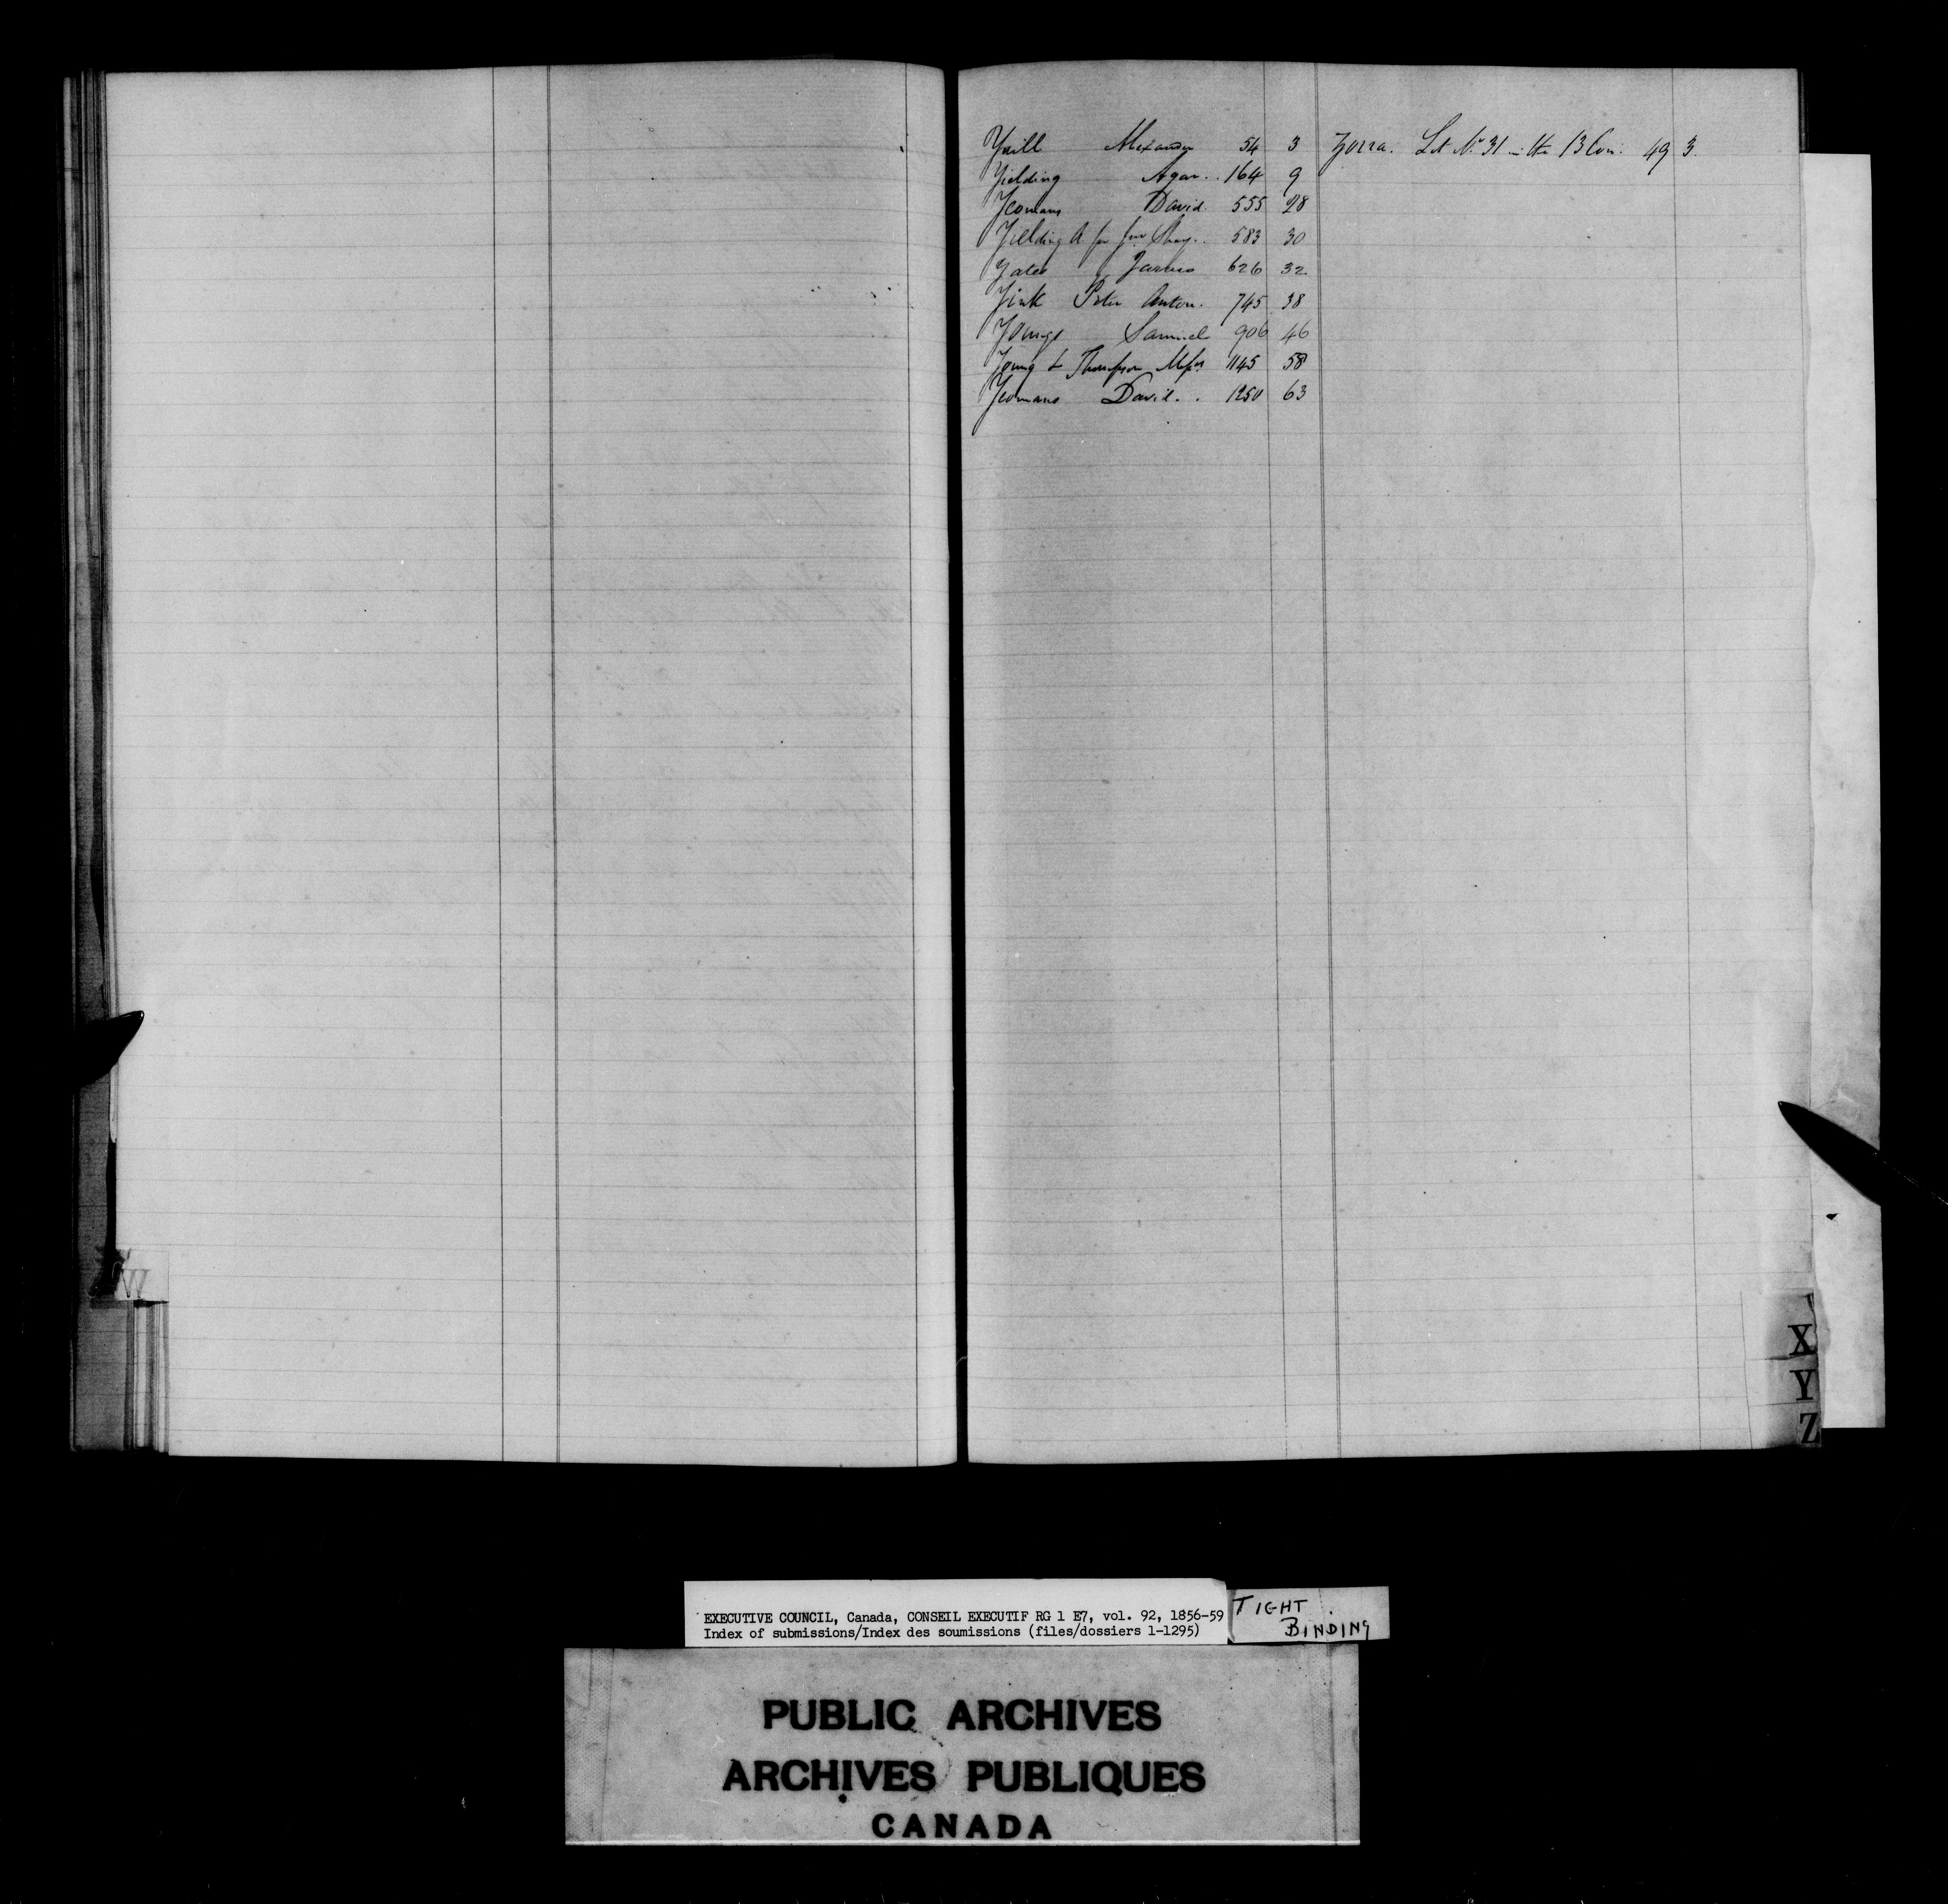 Yuill Alexander 54 3 Zorra. Lot No. 31 in the 13 Con. 49 3.
Yielding Agar.. 164 9
Yeomans David. 555 28
Yielding A for Jno 583 30
Yates James 626 32
Yink Peter Anton. 745 38
Youngs Samuel 906 46
Young & Thompson Messrs 1145 58
Yeomans David. . 1250 63
W
X
Y
Z
EXECUTIVE COUNCIL, Canada, CONSEIL EXECUTIF RG 1 E7, vol. 92, 1856-59
Index of submissions/Index des soumissions (files/dossiers 1-1295)
TIGHT
BINDING
PUBLIC ARCHIVES
ARCHIVES PUBLIQUES
CANADA